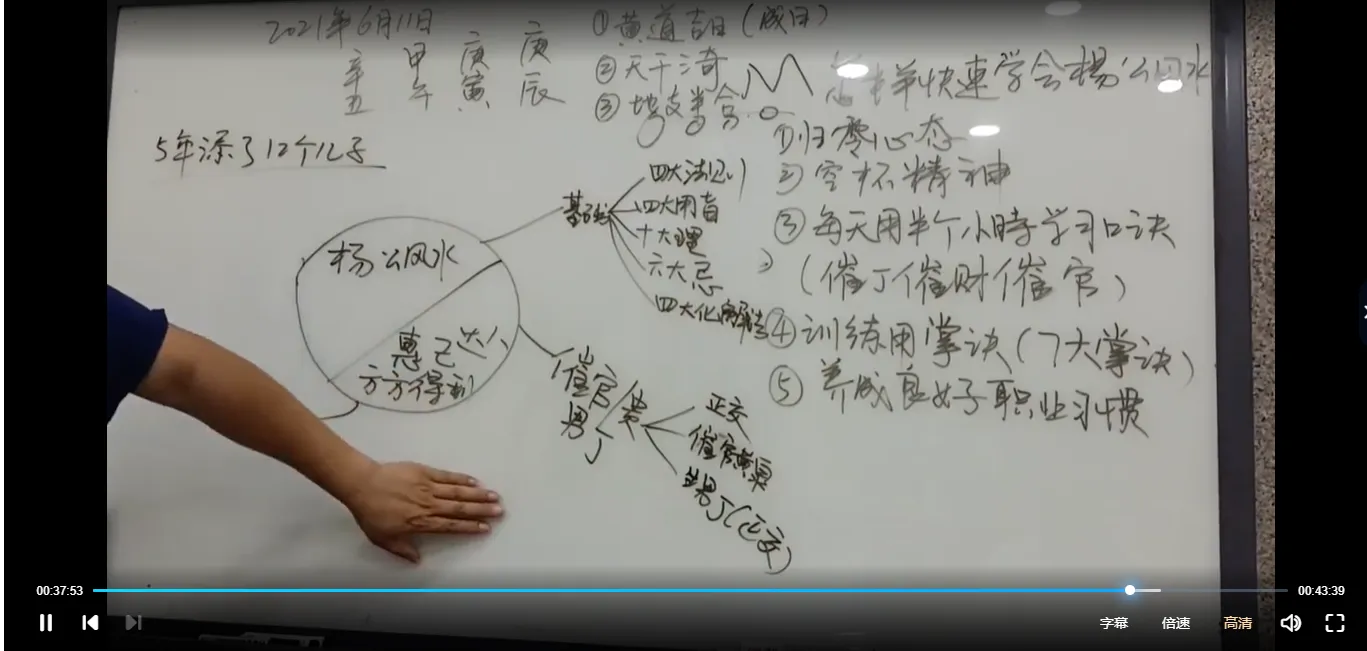 2021年6月11日
辛 甲 庚 庚
丑 午 寅 辰
①黄道吉日(成日)
②天干三奇
③地支半合
5年添了12个儿子
怎样快速学会杨公风水
①归零心态
②空杯精神
③每天用半个小時学习口诀
(催丁催财催官)
④训练用掌诀(7大掌诀)
⑤养成良好子职业习惯
杨公风水
惠己达人
方方得利
基础
四大法
四大用
十大理
六大忌
四大化解法
催官/贵
男丁
正交
催官贵
生男丁(正交)
00:37:53
00:43:39
字幕
倍速
高清